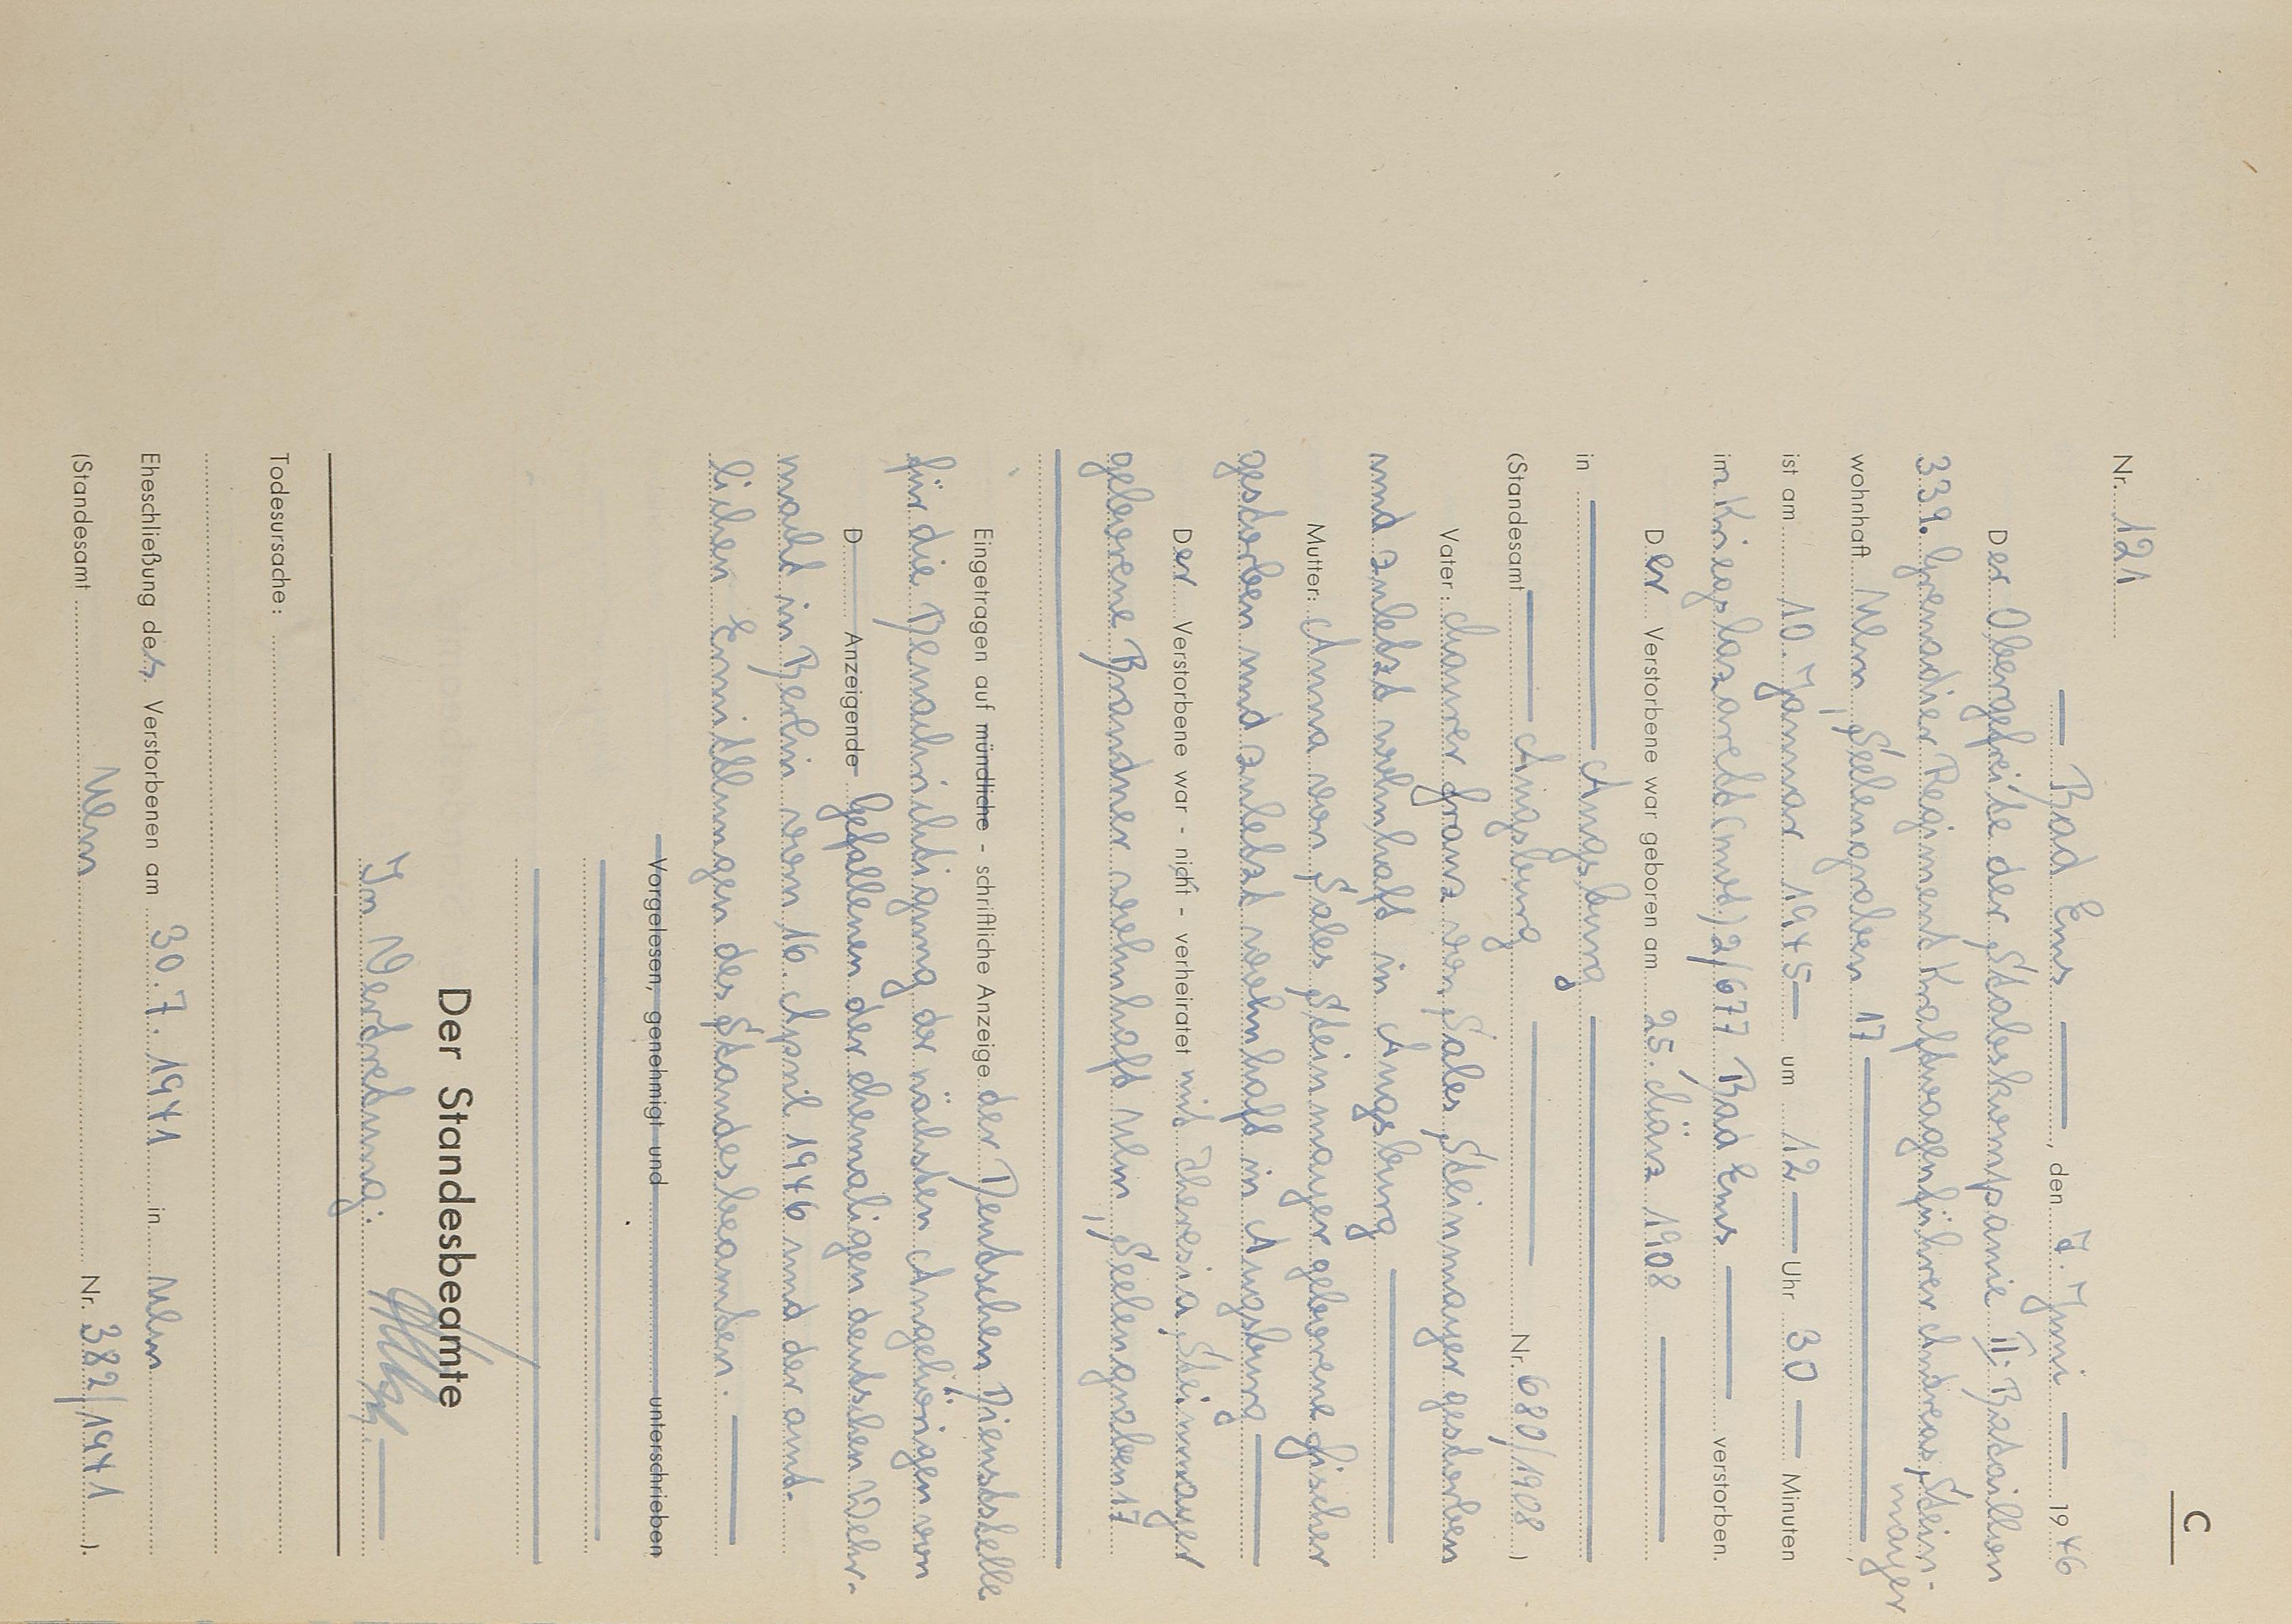 C
Nr. 121
Bad Ems, den 7. Juni 1946
Der Obergefreite der Stabskompanie II. Bataillon
339. Grenadier Regiment Kraftwagenführer Andreas Stein-
mayer
wohnhaft Ulm, Seelengraben 17,
ist am 10. Januar 1945 um 12 Uhr 30 Minuten
im Kriegslazarett (mot) 2/677 Bad Ems verstorben.
Der Verstorbene war geboren am 25. März 1908
in Augsburg
(Standesamt Augsburg Nr. 680/1908)
Vater: Maurer Franz von Sales Steinmayer gestorben
und zuletzt wohnhaft in Augsburg
Mutter: Anna von Sales Steinmayer geborene Fischer
gestorben und zuletzt wohnhaft in Augsburg
Der Verstorbene war - nicht - verheiratet mit Theresia Steinmayer
geborene Brandner wohnhaft Ulm, Seelengraben 17
Eingetragen auf mündliche - schriftliche Anzeige der Deutschen Dienststelle
für die Benachrichtigung der nächsten Angehörigen von
D Anzeigende Gefallenen der ehemaligen deutschen Wehr-
macht in Berlin vom 16. April 1946 und der amt-
lichen Ermittlungen des Standesbeamten.
Vorgelesen, genehmigt und unterschrieben
Der Standesbeamte
In Vertretung:
Todesursache:
Eheschließung des Verstorbenen am 30.7.1941 in Ulm
(Standesamt Ulm Nr. 382/1941).